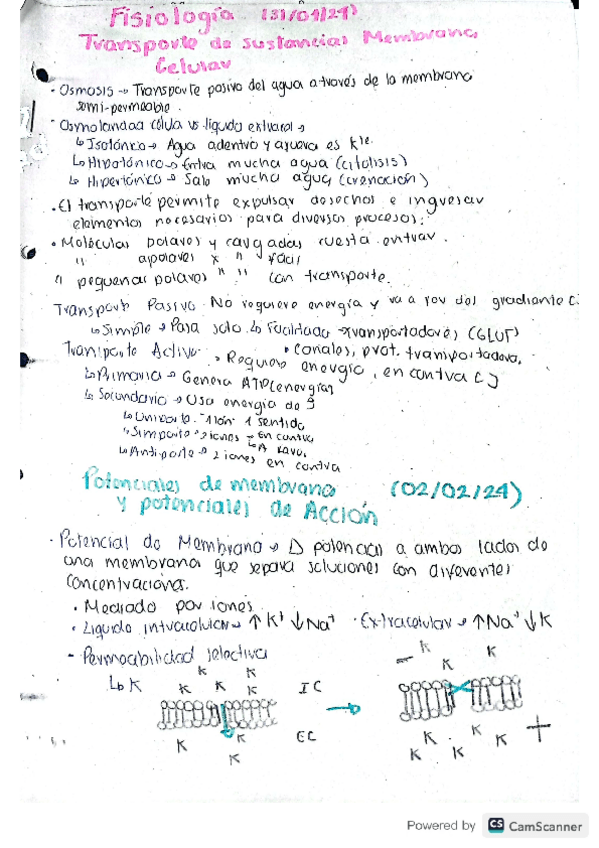 Fisiología (31/01/24)
Transporte de sustancias Membrana
Celular
· Osmosis → Transporte pasivo del agua através de la membrana
semi-permeable.
· Osmolaridad célula vs liquido extracel →
↳ Isotónico → Agua adentro y afuera es kte.
↳ Hipotónico → Entra mucha agua (citolisis)
↳ Hipertónico → Sale mucha agua (crenación)
· El transporte permite expulsar desechos e ingresar
elementos necesarios para diversos procesos.
· Moléculas polares y cargadas cuesta entrar.
" apolares x " fácil
" pequeñas polares " " con transporte.
Transporte Pasivo. No requiere energía y va a fav del gradiante C.
↳ Simple → Pasa solo. ↳ Facilitado → transportadores (GLUT)
· canales, prot. transportadora.
Transporte Activo → Requiere energía, en contra C
↳ Primario → Genera ATP (energía)
↳ Secundario → Usa energía de
↳ Uniporte - 1 ión 1 sentido
↳ Simporte → 2 iones → en contra
↳ A favor.
↳ Antiporte → 2 iones en contra
Potenciales de membrana (02/02/24)
y potenciales de Acción
· Potencial de Membrana → Δ potencial a ambos lados de
una membrana que separa soluciones con diferentes
concentraciones.
· Mediado por iones.
· Liquido intracelular → ↑ K⁺ ↓ Na⁺ · Extracelular → ↑ Na⁺ ↓ K
- Permeabilidad selectiva
↳ K
K K
K K K
IC
EC
K K
K
− K K
K
K K K
K K +
Powered by CS CamScanner